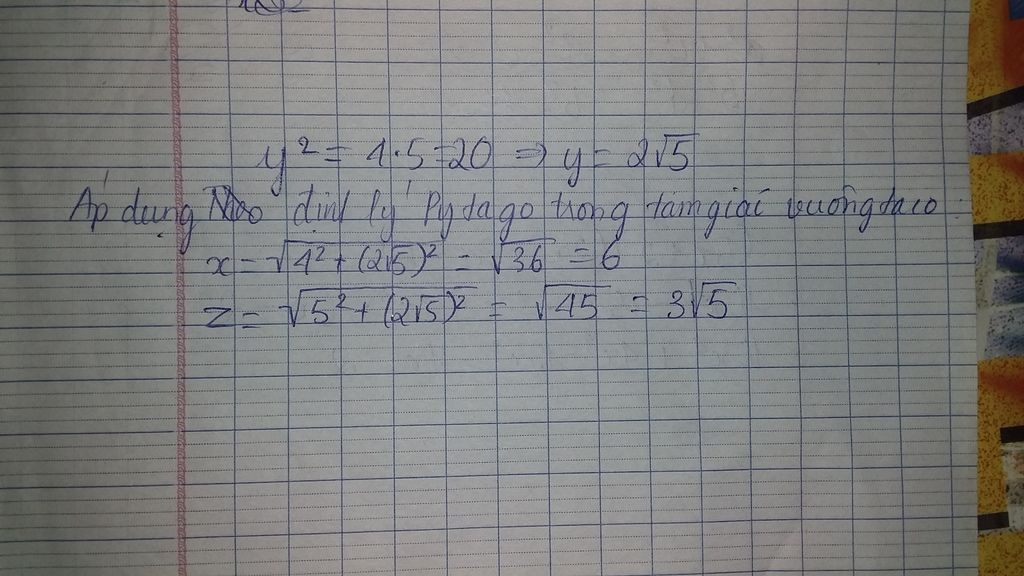 y² = 4·5=20 ⇒ y = 2√5
Áp dụng định lý Pytago trong tam giác vuông ta có:
x = √(4² + (2√5)²) = √36 = 6
z = √(5² + (2√5)²) = √45 = 3√5